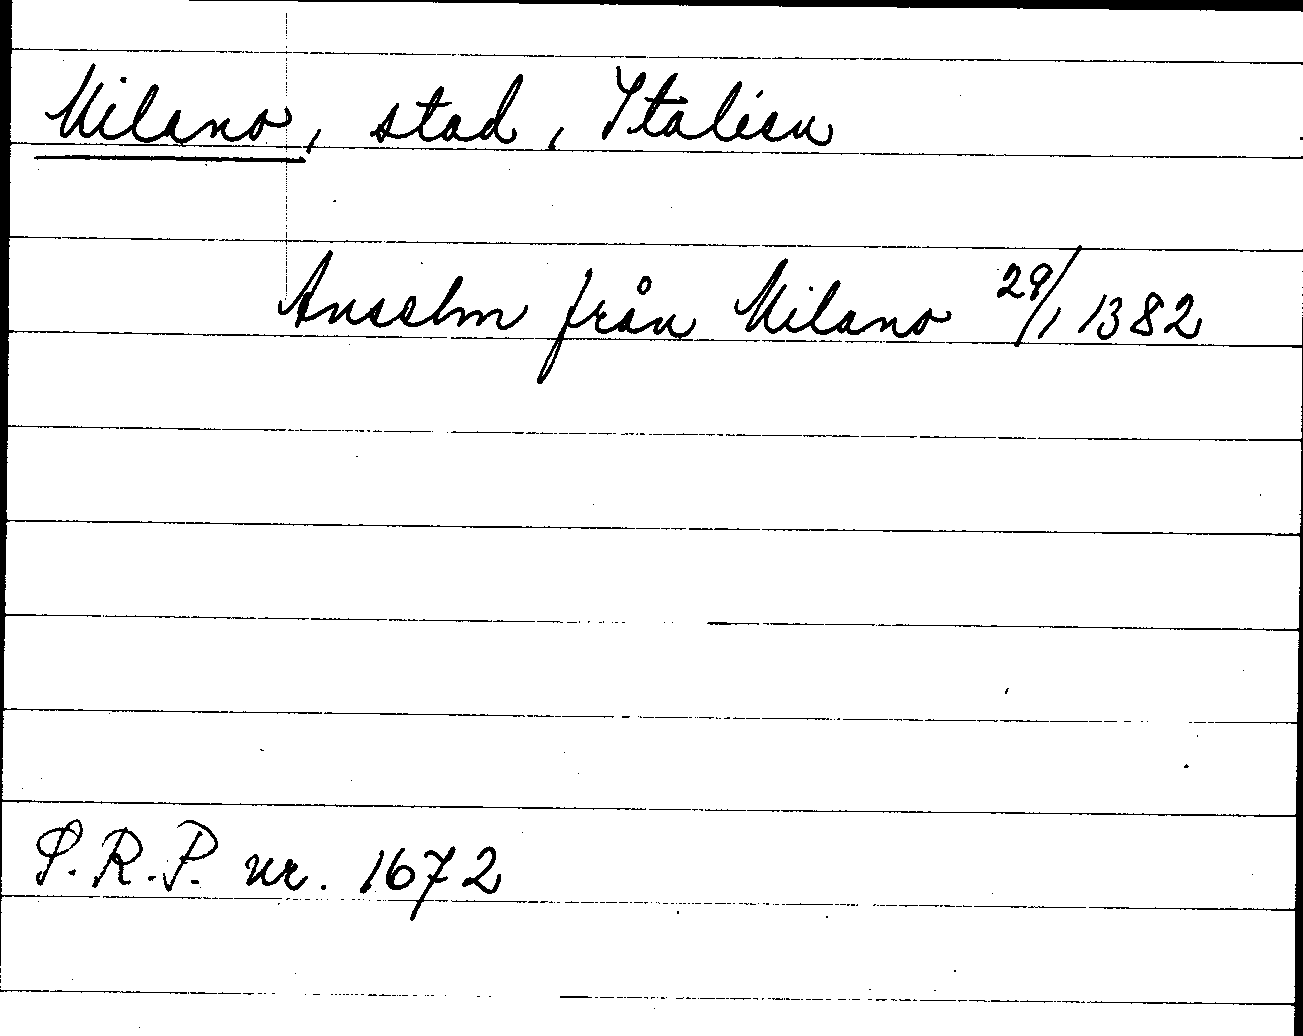 Milano, stad, Italien
Anselm från Milano 29/1 1382
S.R.P. nr. 1672